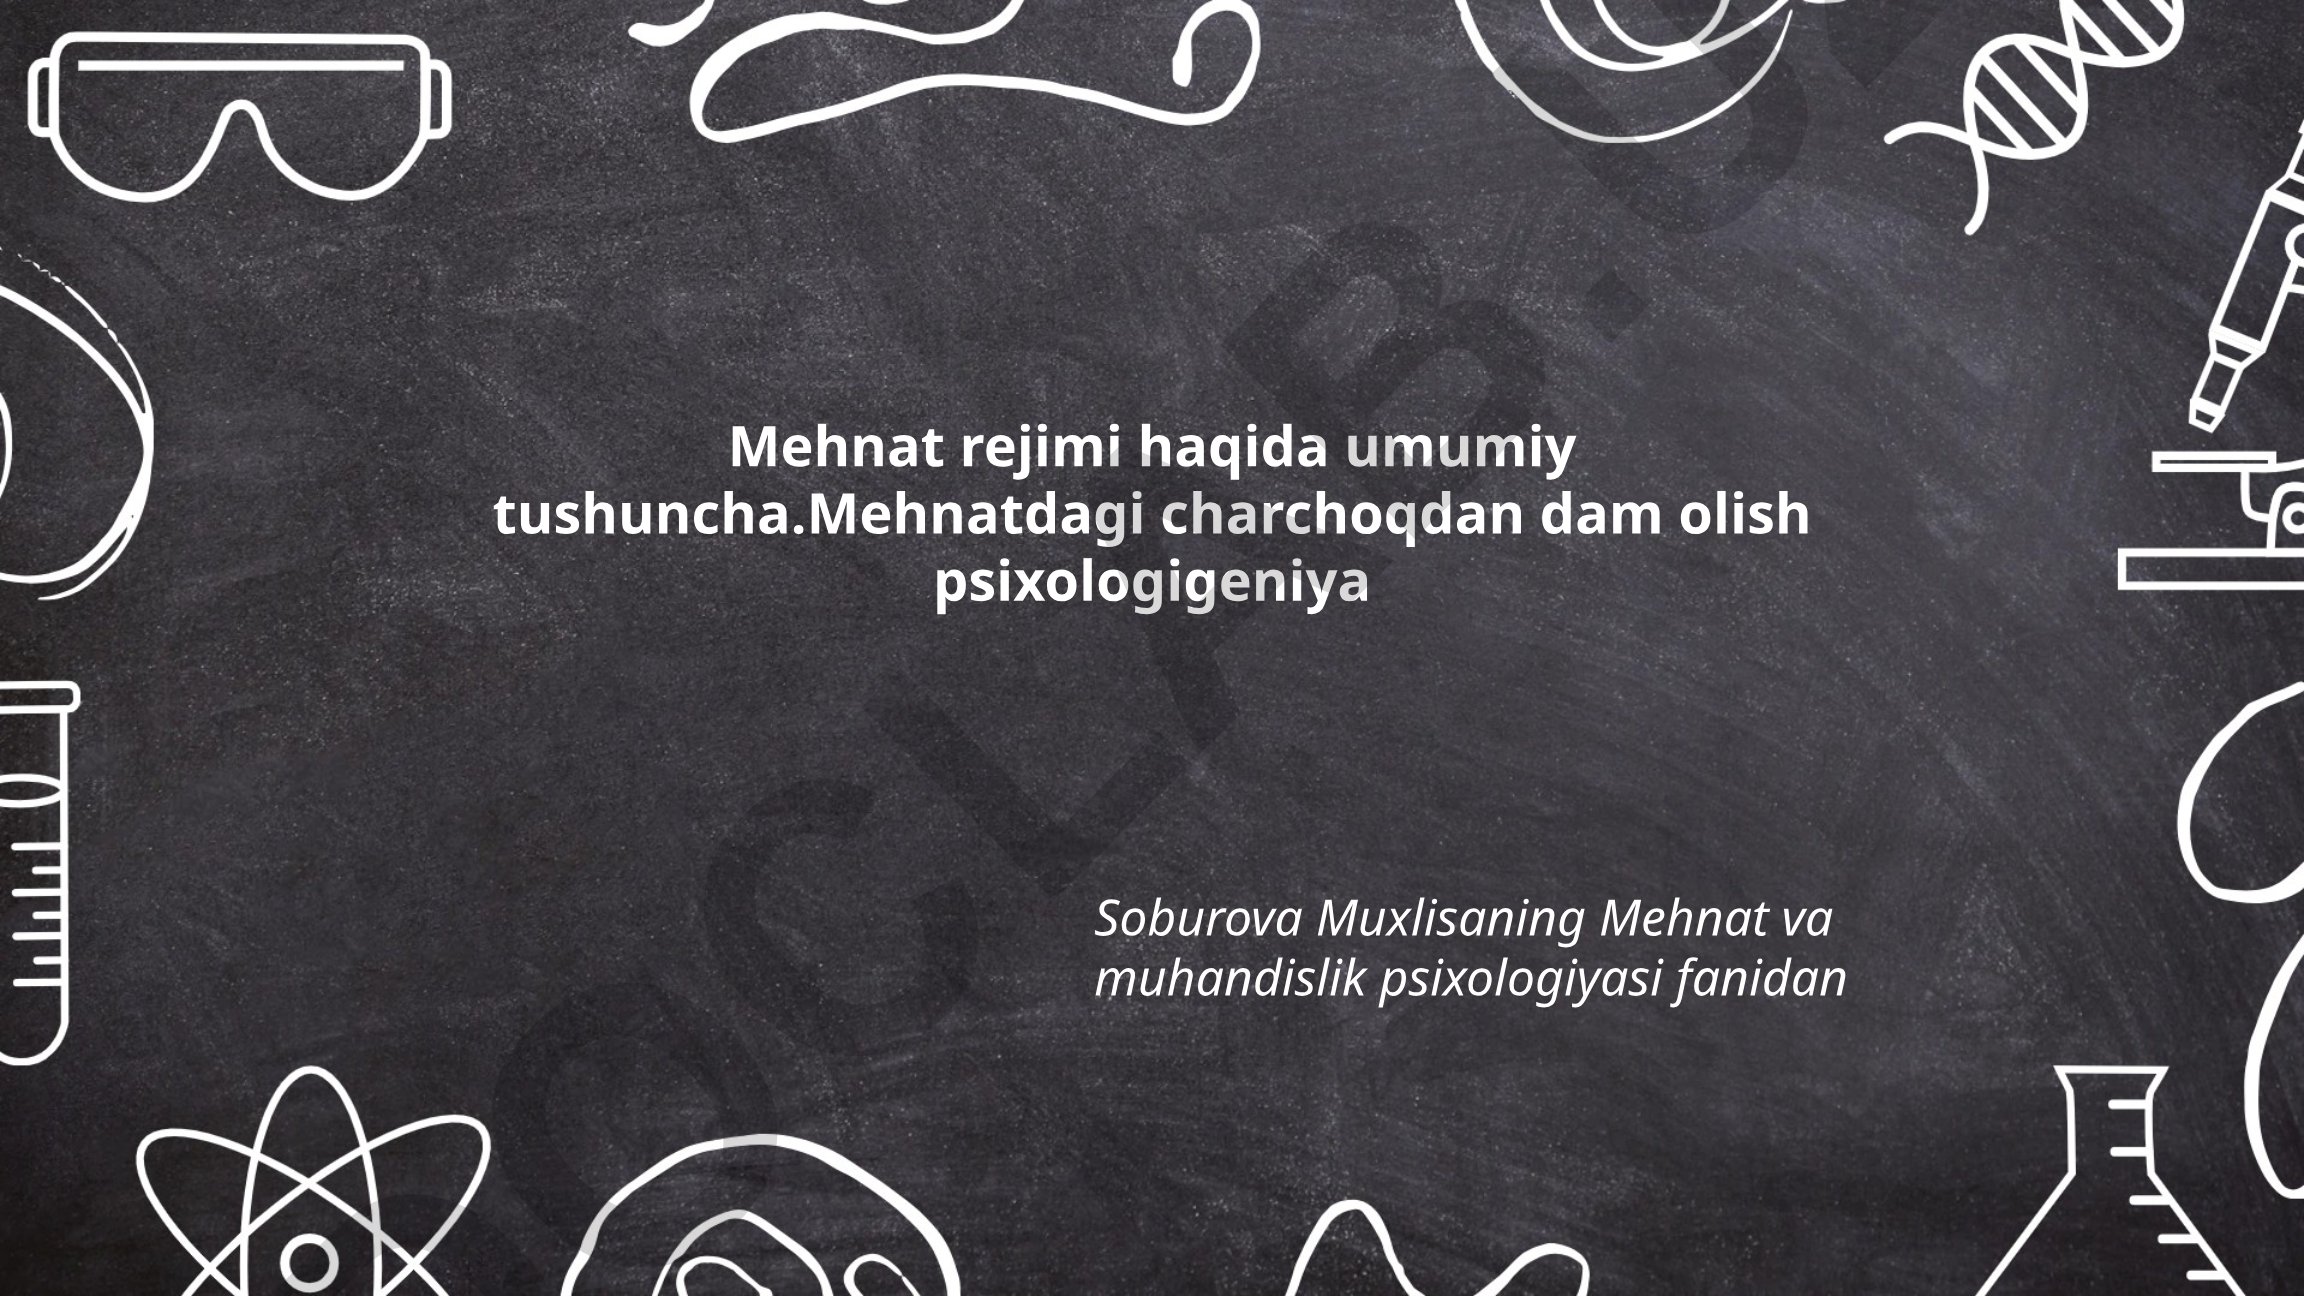 Mehnat rejimi haqida umumiy
tushuncha.Mehnatdagi charchoqdan dam olish
psixologigeniya
Soburova Muxlisaning Mehnat va
muhandislik psixologiyasi fanidan